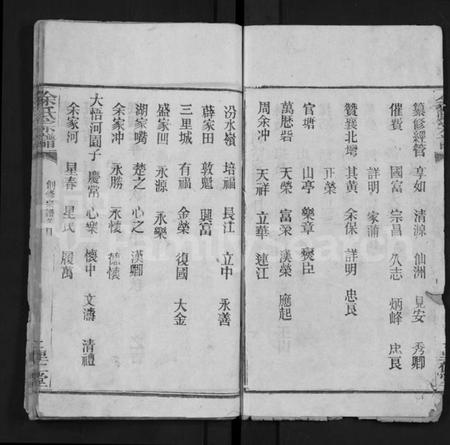 纂修經管 享如 清源 仙洲 見安 秀卿
催費 國富 宗昌 久志 炳峰 忠良
詳明 家蒲
贊襄北灣 其黃 余保 詳明 忠良
正榮
官塘 山亭 樂章 襄臣
萬歷砦 天榮 富榮 漢榮 應起
周余冲 天祥 立華 連江
汾水嶺 培福 長江 立中 永善
薛家田 敦魁 興富
三里城 有福 金榮 復國 大金
盛家凹 永源 永樂
湖家嘴 楚之 心之 漢卿
余家冲 永勝 永懷 德懷
大悟河園子 慶常 心樂 懷中 文濤 清禮
余家河 星春 星氏 履萬
余氏宗譜
創修宗譜